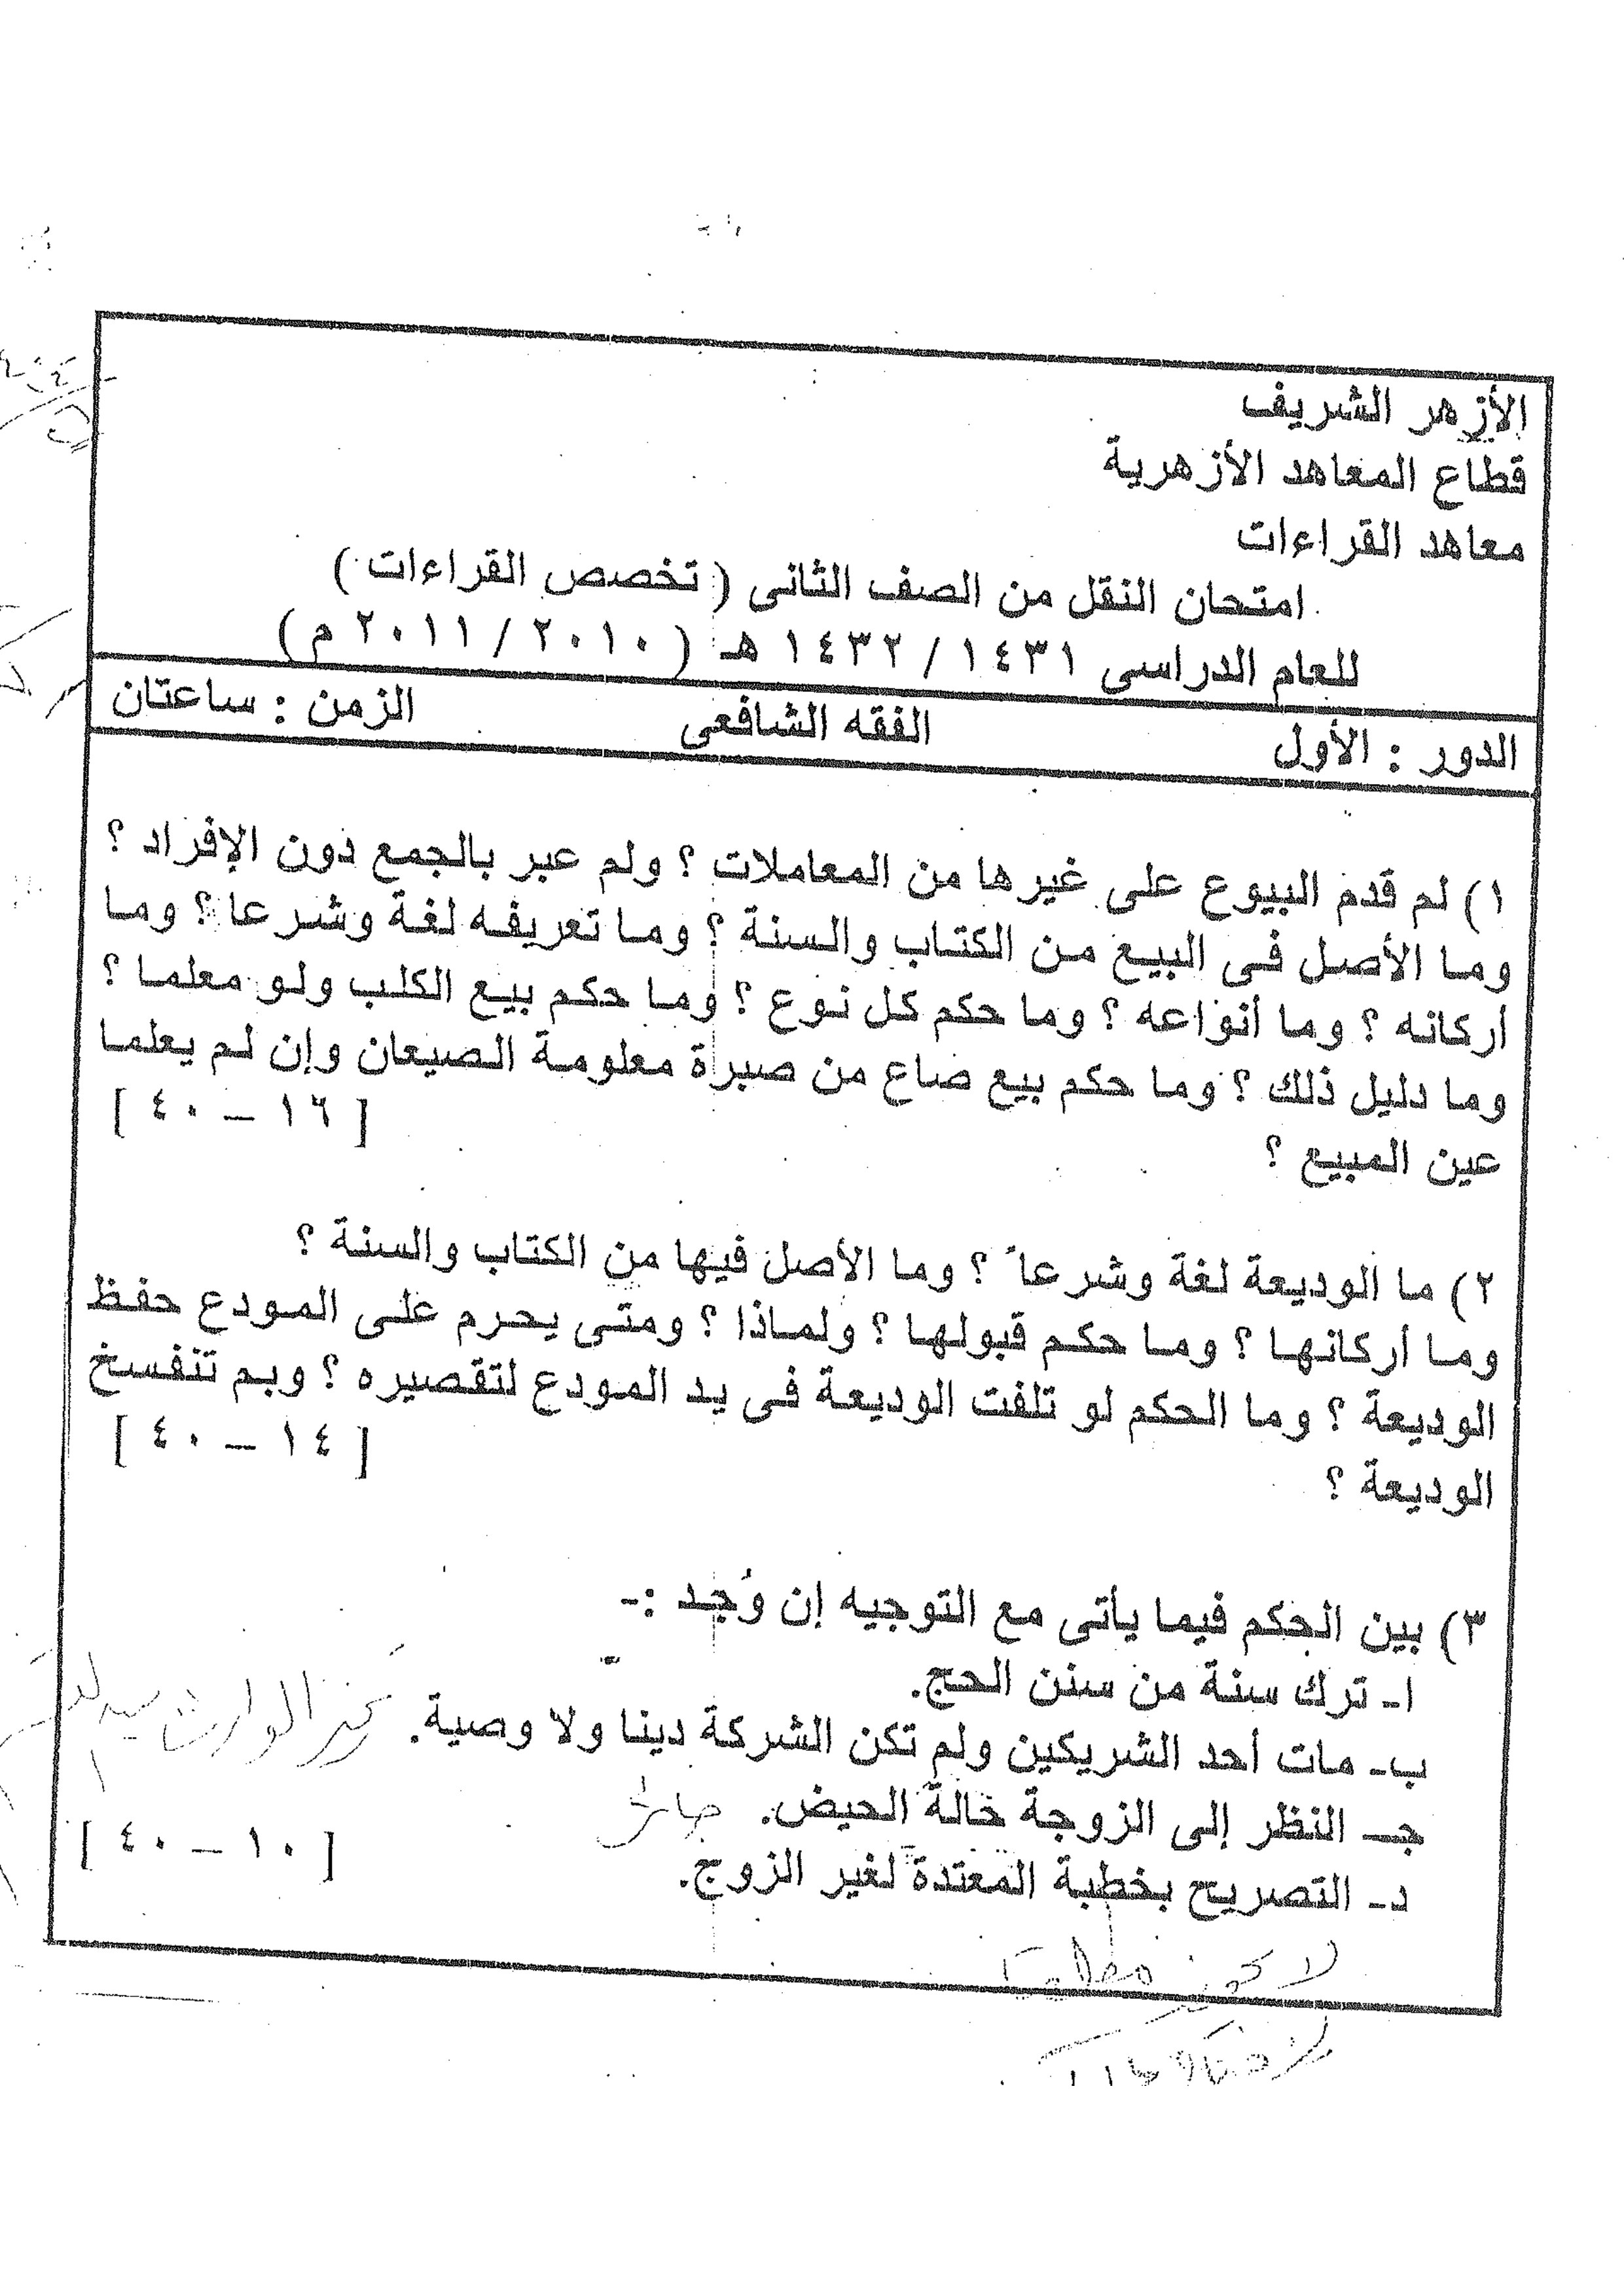 الأزهر الشريف
قطاع المعاهد الأزهرية
معاهد القراءات
امتحان النقل من الصف الثانى ( تخصص القراءات )
للعام الدراسى ١٤٣١ / ١٤٣٢ هـ ( ٢٠١٠ / ٢٠١١ م )
الدور : الأول الفقه الشافعى الزمن : ساعتان
١) لم قدم البيوع على غيرها من المعاملات ؟ ولم عبر بالجمع دون الإفراد ؟
وما الأصل فى البيع من الكتاب والسنة ؟ وما تعريفه لغة وشرعا ؟ وما
أركانه ؟ وما أنواعه ؟ وما حكم كل نوع ؟ وما حكم بيع الكلب ولو معلما ؟
وما دليل ذلك ؟ وما حكم بيع صاع من صبرة معلومة الصيعان وإن لم يعلما
عين المبيع ؟ [ ١٦ – ٤٠ ]
٢) ما الوديعة لغة وشرعاً ؟ وما الأصل فيها من الكتاب والسنة ؟
وما أركانها ؟ وما حكم قبولها ؟ ولماذا ؟ ومتى يحرم على المودع حفظ
الوديعة ؟ وما الحكم لو تلفت الوديعة فى يد المودع لتقصيره ؟ وبم تنفسخ
الوديعة ؟ [ ١٤ – ٤٠ ]
٣) بين الحكم فيما يأتى مع التوجيه إن وُجد :-
ا- ترك سنة من سنن الحج.
ب- مات أحد الشريكين ولم تكن الشركة دينا ولا وصية.
جـ- النظر إلى الزوجة حالة الحيض. جائز
د- التصريح بخطبة المعتدة لغير الزوج.
[ ١٠ – ٤٠ ]